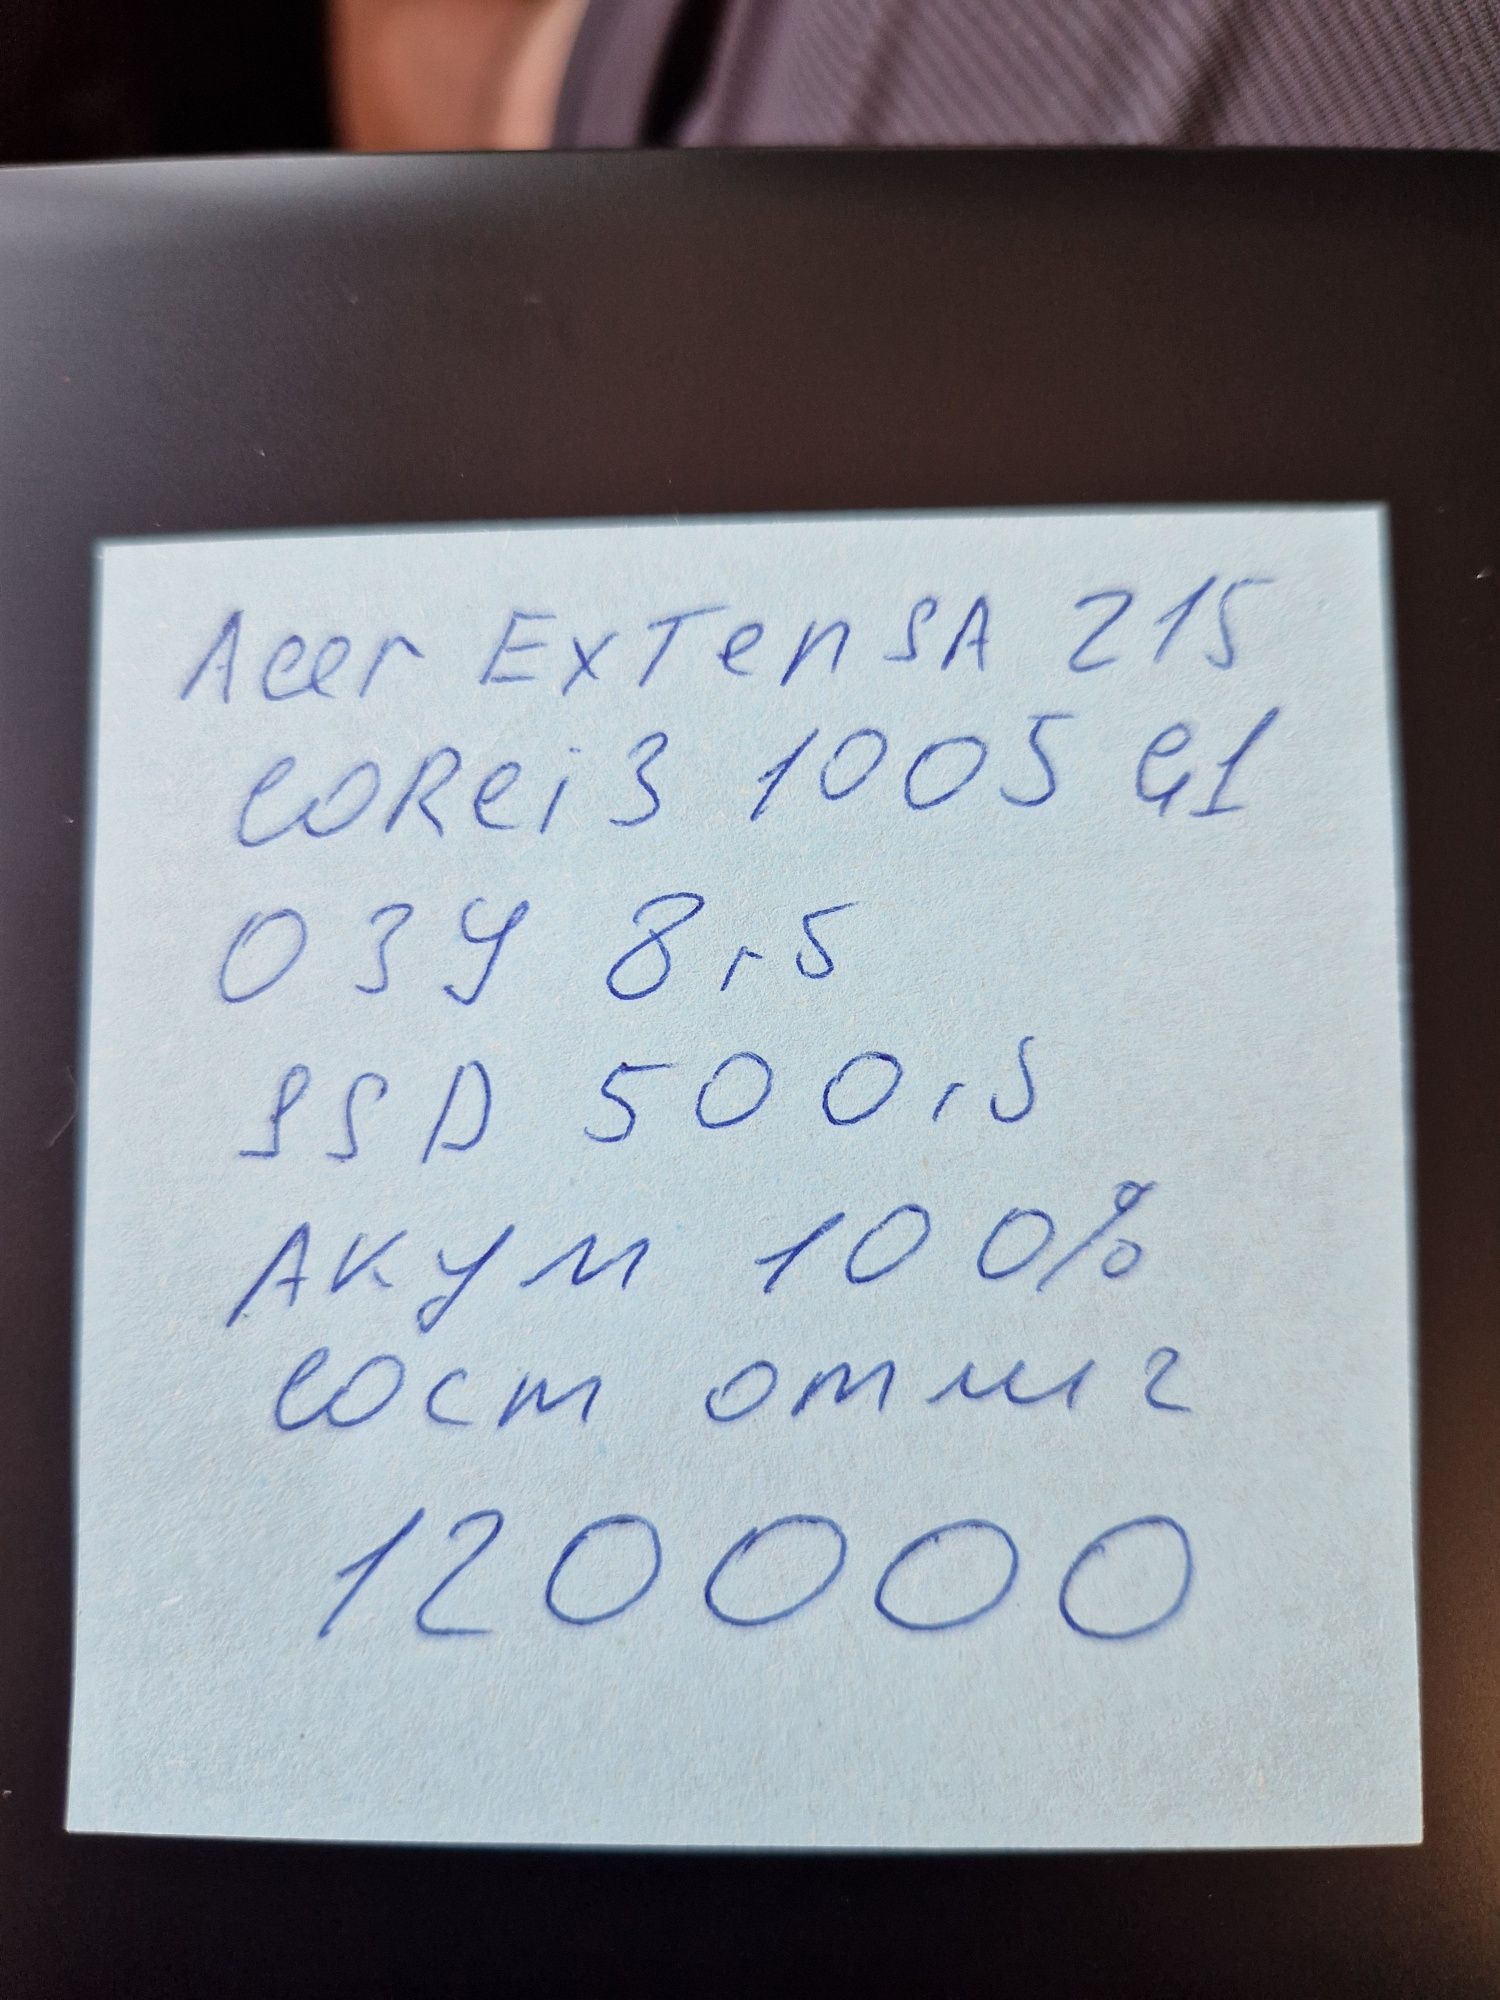 Acer ExTensA 215
COREi3 1005 G1
ОЗУ 8гб
SSD 500гб
Акум 100%
сост отлич
120000